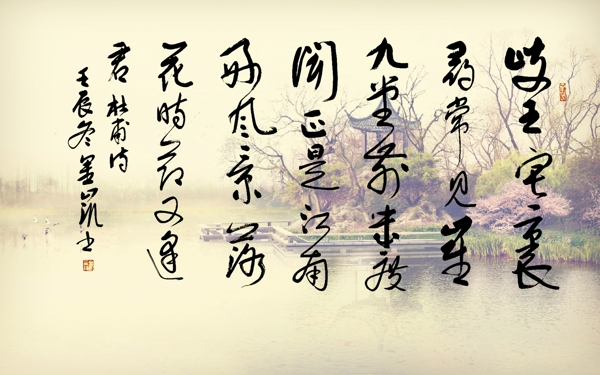 岐王宅裏
尋常見崔
九堂前幾度
聞正是江南
好风景落
花時節又逢
君 杜甫诗
壬辰冬墨凯书